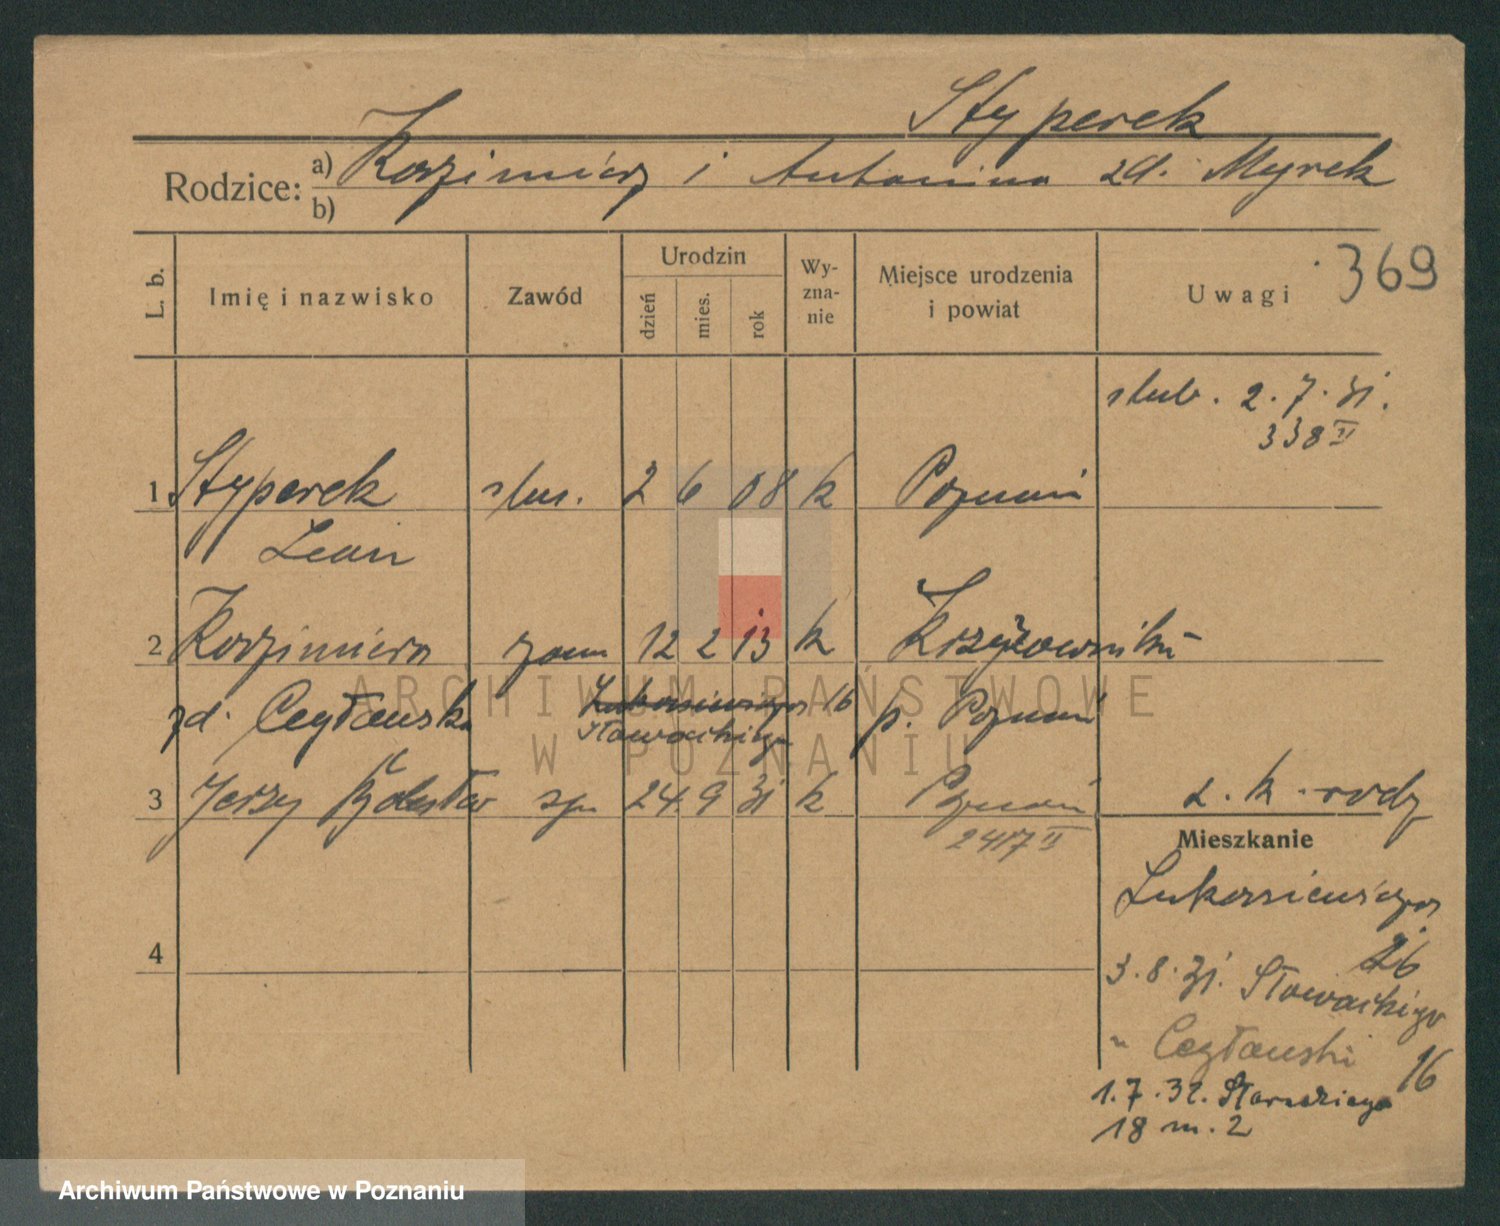 Styperek
Rodzice: a) Kazimierz i Antonina zd. Myrek
b)
369
L. b.
Imię i nazwisko
Zawód
Urodzin
dzień
mies.
rok
Wy-
zna-
nie
Miejsce urodzenia
i powiat
Uwagi
slub. 2.7.31.
338 II
1 Styperek slus. 2 6 08 k Poznań
Leon
2 Kazimiera żona 12 2 13 k Krzyżowniki
zd. Cegłowska Łukasiewicza 16 p. Poznań
Słowackiego
3 Jerzy syn 24. 9 31 k Poznań
2417 II
z. k. rodz
Mieszkanie
Łukasiewicza
26
3.8.31. Słowackiego
16
u Cegłowski
1.7.32. Słowackiego
18 m. 2
4
ARCHIWUM PAŃSTWOWE
W POZNANIU
Archiwum Państwowe w Poznaniu